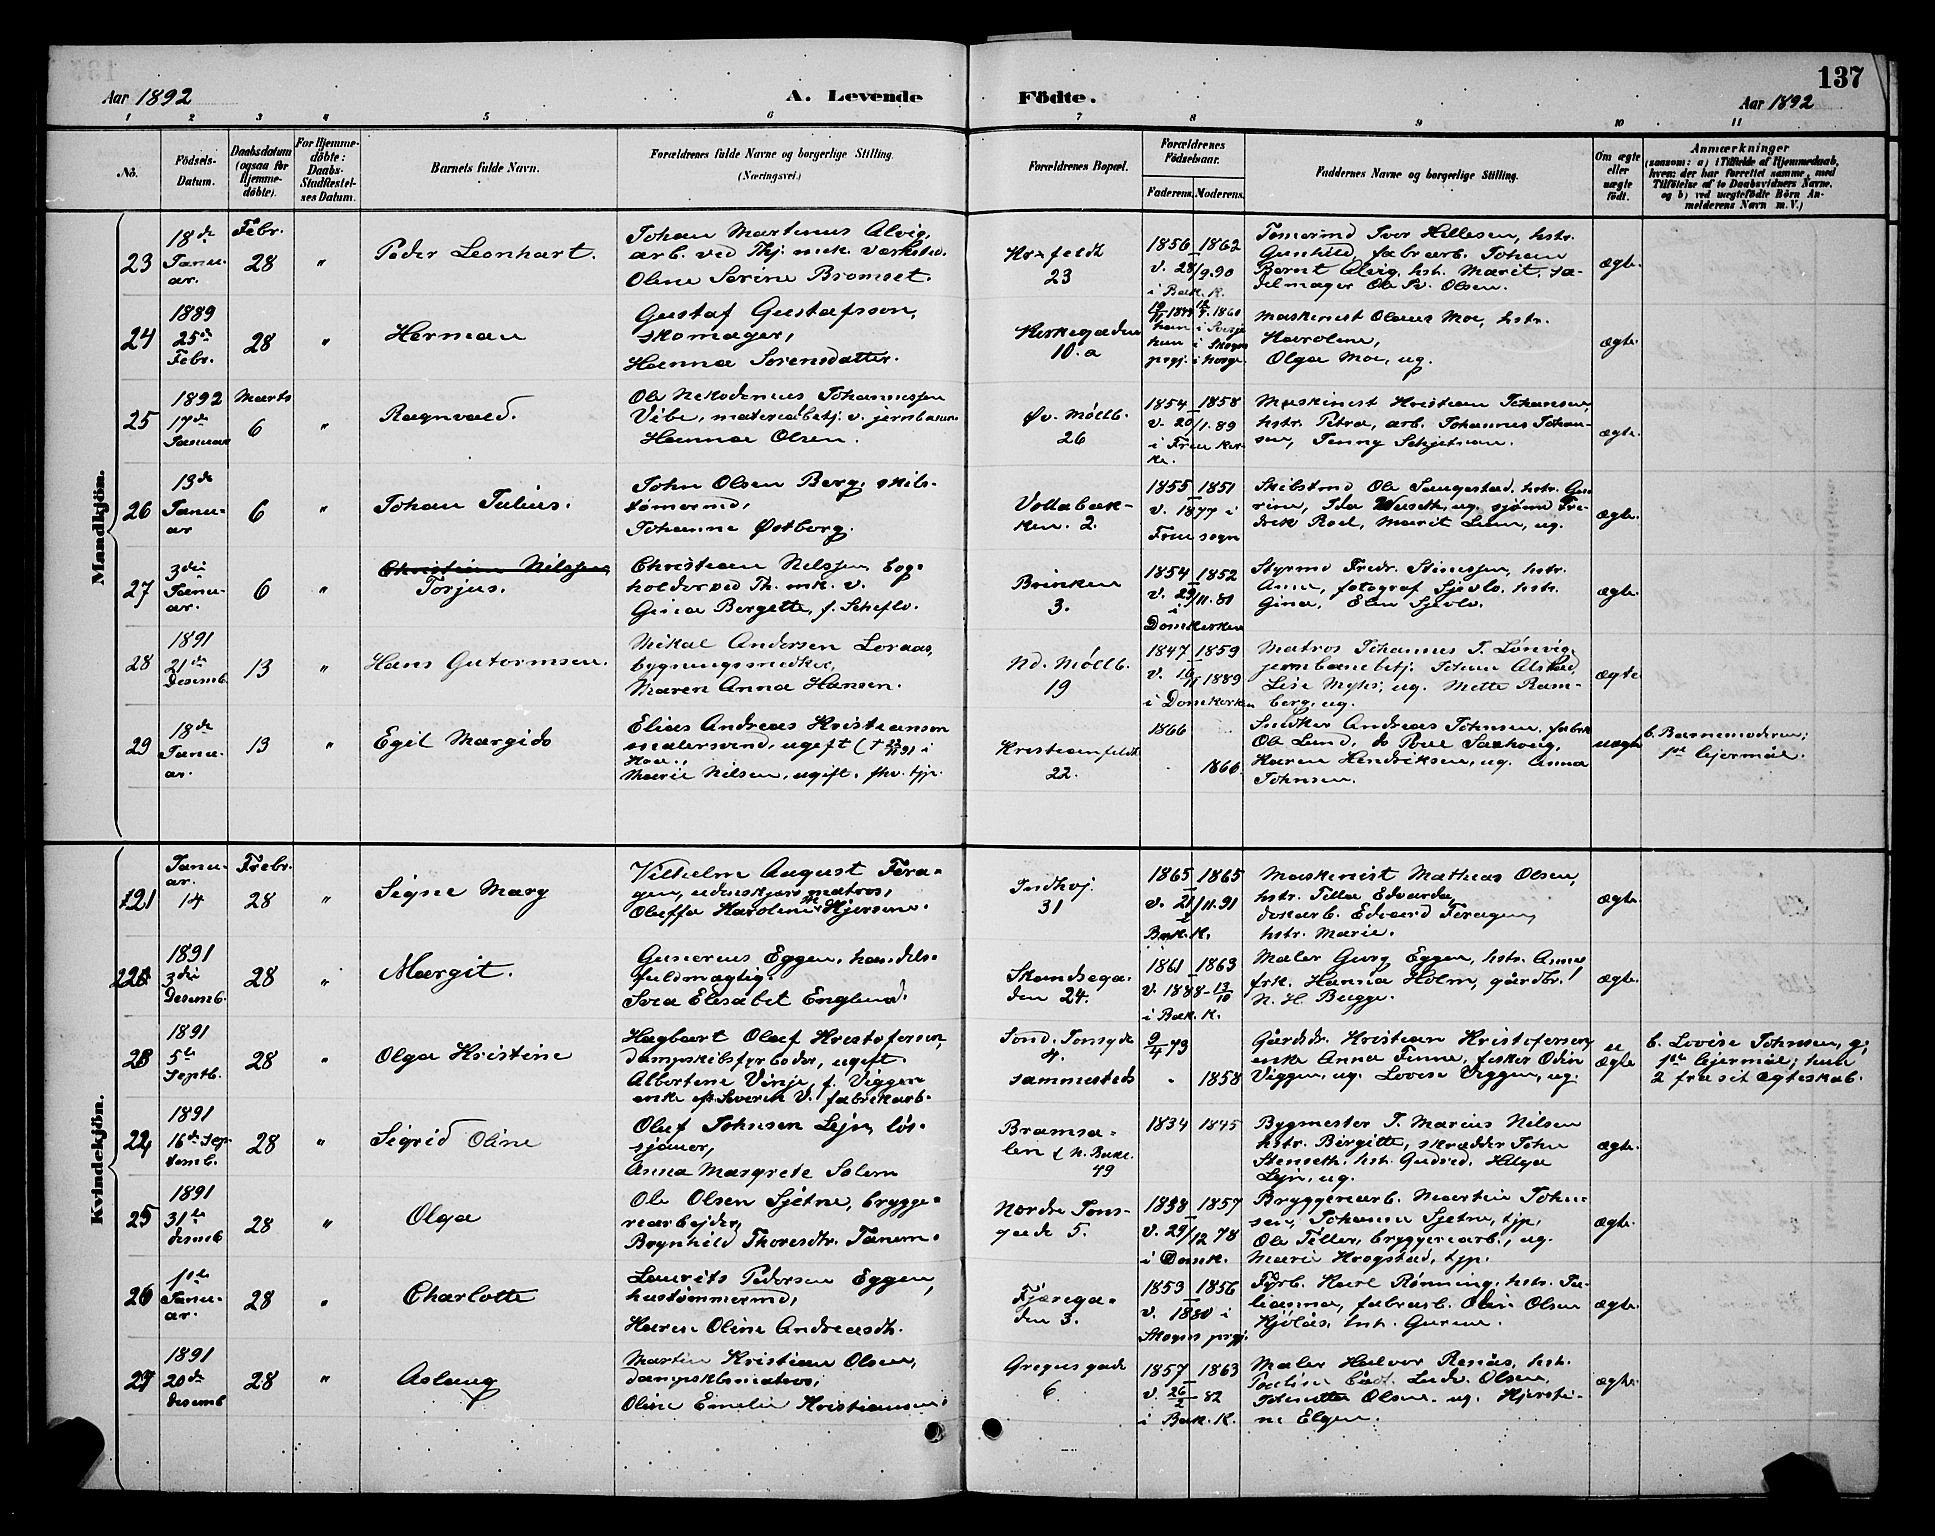 137
Aar 1892
A. Levende Födte.
Aar 1892
1 2 3 4 5 6 7 8 9 10 11
No.
Födsels-Datum.
Daabsdatum (ogsaa for Hjemmedöbte).
For Hjemmedöbte: Daabs-Stadfestelses Datum.
Barnets fulde Navn.
Forældrenes fulde Navne og borgerlige Stilling.
(Næringsvei.)
Forældrenes Bopæl.
Forældrenes Födselsaar.
Faderens. Moderens.
Faddernes Navne og borgerlige Stilling.
Om ægte eller uægte födt.
Anmærkninger
(saasom: a) i Tilfælde af Hjemmedaab, hven: der har forrettet samme, med Tilföielse af to Daabsvidners Navne, og b) ved uægtefödte Börn Anmelderens Navn m. V.)
Mandkjön.
23
18de Janu-ar.
Febr. 28
"
Peder Leonhart.
Johan Martinus Alvig,
arb. ved Thj. mek. værksted.
Oline Serine Bromset.
Kr.feldt
23
1856 - 1862
v. 28/9.90
i Bak. K.
Tømermd Ivor Hellesen, hstr.
Gunhild, fabrarb. Johan
Bernt Alvig, hst. Marit, sa-
delmager Ole Olsen.
ægte
24
1889
25de Febr.
28
"
Herman
Gustaf Gustafsson,
skomager,
Hanna Sørensdatter.
Kirkegaden
10.a
Maskinist Olaus Moe, hstr.
Karoline,
Olga Moe, ug.
ægte.
25
1892
17de Januar
Marts 6
"
Ragnvald.
Ole Nekodemus Johannessen
Vibe, materialbetj. v. jernbanen
Hanna Olsen.
Øv. Möllb.
26
1854 - 1858
v. 20/1.89
i Frue kirke.
Maskinist Kristian Johansen,
hstr. Petra, arb. Johannes Johan-
sen, Jenny Setsjetsian.
ægte.
26
13de Janu-ar
6
"
Johan Julius.
John Olsen Berg, skibs-
tömermd,
Johanne Østborg.
Vollabak-
ken. 2.
1855 1851
v. 1877 i
Frue sogn
Skibstmd Ole Saugestad, hstr. Gu-
rine, Ida Huseth, ug. sjömd Fre-
drik Roel, Marit Lium, ug.
ægte.
27
3die Janu-ar.
6
"
Christian Nilssen,
Torjus.
Christian Nilssen, bog-
holder ved Th. mk. v.
Gina Bergette, f. Scheflo.
Brinken
3.
1854 - 1852
v. 29/11.81
i
Domkirken
Styrmd Fredr. Stinessen, hstr.
Anna, fotograf Sjevlo, hstr.
Gina, Elen Sjevlo.
ægte.
28
1891
21de Desemb.
13
"
Hans Gutormsen.
Mikal Andersen Loraas,
bygningssnedker,
Maren Anna Hansen.
Nd. Möllb.
19
1847 - 1859
v. 1889
i Domkirken
Matros Johannes J. Lönvig,
jernbanebetj. Johan Alstad,
Lise Myhr, ug. Mette Ram-
berg, ug.
ægte
29
18de Janu-ar.
13
"
Egil Margido
Elias Andreas Kristiansen
malersvend, ugift
Marie Nilsen, ugift, fhv. tjp.
Kristianfeldt
22.
1866
1866.
Snedker Andreas Johnsen, fabrik
Ole Lund, do Poul Saxhoug,
Karen Hendriksen, ug. Anna
Johnsen.
uægte
b. Barnemoderen;
1ste lejermål.
Kvindekjön.
21
Janu-ar. 14
Febr. 28
"
Signe Mary
Vilhelm August Fera-
gen, udenskjærs matros,
Oleffa Karoline Kjersem.
Indhvj.
31
1865 - 1865
v. 21/11.91
i
Bak. K.
Maskinist Mathias Olsen,
hstr. Tilla Edvarda,
dokarb. Edvard Feragen,
hstr. Marie.
ægte.
22
1891
3die Desemb.
28
"
Margit.
Gunerius Eggen, handels-
fuldmægtig,
Sva Elisabet Englund.
Skandsega-
den 24.
1861 - 1863
v. 1888 - 13/10
i Bak. K.
Maler Georg Eggen, hstr. Anna
frk. Hanna Holm, gårdbr.
N. H. Bugge.
ægte.
23
1891
5te Septb.
28
"
Olga Kristine
Hagbart Olaf Kristofersen,
dampskibsfyrbøder, ugift.
Albertine Vinje, f. Viggen
enke eft. Severin V. fabrikarb.
Sond. Jonsgde
4.
sammesteds
9/4 73
" 1858
Gårdsdr. Kristian Kristofersen,
enke Anna Finne, fisker Odin
Viggen, ug. Lovise Viggen, ug.
uægte
b. Lovise Johnsen, g;
1ste lejermål; hun
2 fra sit ægteskab.
24
1891
16de September.
28
"
Sigrid Oline
Oluf Johnsen Lejn, lös-
sjauer,
Anna Margrete Solem
Bramsa-
len i N. Bakl.
49
1834 1845
Bygmester J. Marius Nilsen
hstr. Birgitte, skrædder John
Stenseth, hst. Gudrid, Helga
Lejn, ug.
ægte.
25
1891
31te desmb
28
"
Olga
Ole Olsen Sjetne, brygge-
riearbejder,
Brynhild Thoresdtr. Tanem.
Nordre Jons-
gade 5.
1838 - 1857
v. 29/12 78
i Domk.
Bryggeriearb. Martin John-
sen, Johanna Sjetne, tjp,
Ole Tiller, bryggeriearb., ug.
Marie Krogstad, tjp.
ægte.
26
1ste Janu-ar.
28
"
Charlotte
Laurits Pedersen Eggen,
hustömmermd,
Karen Oline Andreasdt.
Fjærega-
den 3.
1853 - 1856
v. 1880 i
Skogns prgj.
Fyrb. Karl Rönning, hstr. Ju-
lianna, fabrarb. Odin Olsen
Kjölås, hst. Gurine.
ægte.
27
1891
20de desemb
28
"
Aslaug
Martin Kristian Olsen,
dampskibsmatros,
Oline Emelie Kristiansen.
Gregusgade
6
1857 - 1863
v. 26/2 - 82
i Bak. K.
Maler Halvor Renås, hst.
Pauline Ludv. Olsen,
Jenette Olsen, ug. Kjersti-
ne Elgen.
ægte.